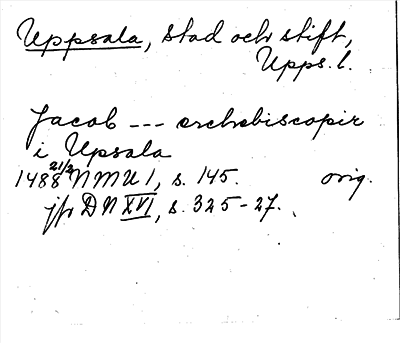 Uppsala, stad och stift,
Upps. l.
Jacob --- erchebiscopir
i Upsala
1488 21/2 NMU I, s. 145. orig.
jfr DN XVI, s. 325-27.